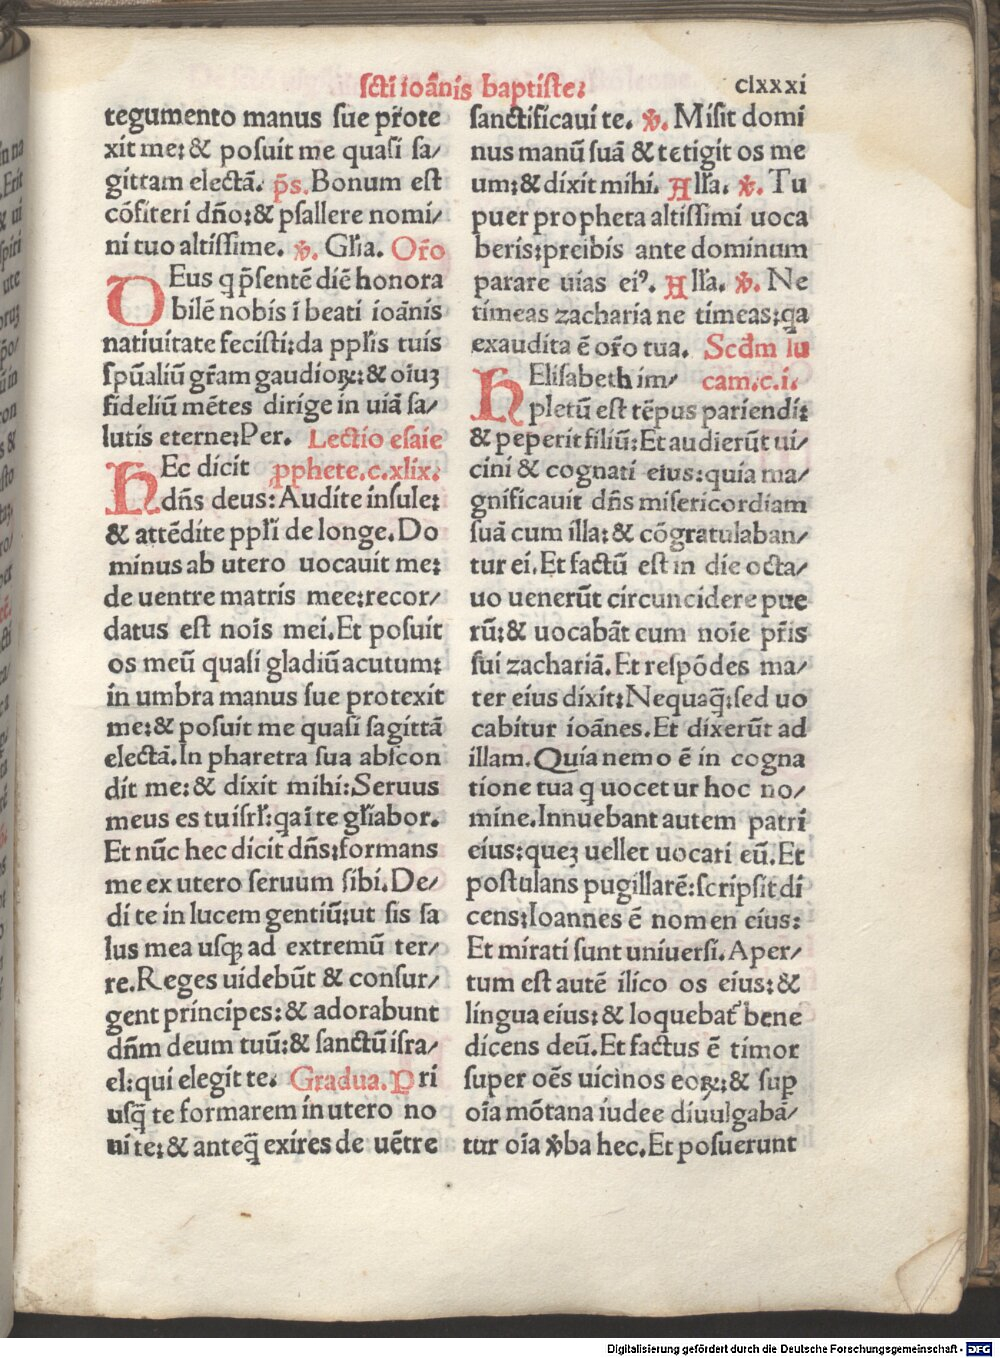 scti ioānis baptiste: clxxxi
tegumento manus sue ꝓr̄ote
xit me: & posuit me quasi sa/
gittam electā. p̄s. Bonum est
cōfiteri dn̄o: & psallere nomi/
ni tuo altissime. ꝟ. Gl̄ia. Or̄o
DEus q p̄sentē diē honora
bilē nobis ī beati ioānis
natiuitate fecisti: da ppl̄is tuis
spūaliū gr̄am gaudioꝝ: & oīuꝫ
fideliū mētes dirige in uiā sa/
lutis eterne: Per. Lectio esaie
HEc dicit pphete.c.xlix.
dn̄s deus: Audite insule:
& attēdite ppl̄i de longe. Do
minus ab utero uocauit me:
de uentre matris mee: recor/
datus est nois mei. Et posuit
os meū quasi gladiū acutum:
in umbra manus sue protexit
me: & posuit me quasi sagittā
electā. In pharetra sua abscon
dit me: & dixit mihi: Seruus
meus es tu isrl̄: qa ī te gl̄iabor.
Et nūc hec dicit dn̄s: formans
me ex utero seruum sibi. De/
di te in lucem gentiū: ut sis sa
lus mea usqꝫ ad extremū ter/
re. Reges uidebūt & consur/
gent principes: & adorabunt
dn̄m deum tuū: & sanctū isra/
el: qui elegit te. Gradua. Pri
usq̄ te formarem in utero no
ui te: & anteq̄ exires de uētre
sanctificaui te. ꝟ. Misit domi
nus manū suā & tetigit os me
um: & dixit mihi. All̄a. ꝟ. Tu
puer propheta altissimi uoca
beris: preibis ante dominum
parare uias eiꝰ. All̄a. ꝟ. Ne
timeas zacharia ne timeas: qa
exaudita ē or̄o tua. Scdm̄ lu
HElisabeth im/ cam.c.i.
pletū est tēpus pariendi:
& peperit filiū: Et audierūt ui/
cini & cognati eius: quia ma/
gnificauit dn̄s misericordiam
suā cum illa: & cōgratulaban/
tur ei. Et factū est in die octa/
uo uenerūt circuncidere pue
rū: & uocabāt eum noīe pr̄is
sui zachariā. Et respōdes ma/
ter eius dixit: Nequaq̄: sed uo
cabitur ioānes. Et dixerūt ad
illam. Quia nemo ē in cogna
tione tua q uocetur hoc no/
mine. Innuebant autem patri
eius: queꝫ uellet uocari eū. Et
postulans pugillarē: scripsit di
cens: Ioannes ē nomen eius:
Et mirati sunt uniuersi. Aper/
tum est autē ilico os eius: &
lingua eius: & loquebat᷑ bene
dicens deū. Et factus ē timor
super oēs uicinos eoꝝ: & sup
oīa mōtana iudee diuulgabā/
tur oīa ꝟba hec. Et posuerunt
Digitalisierung gefördert durch die Deutsche Forschungsgemeinschaft - DFG